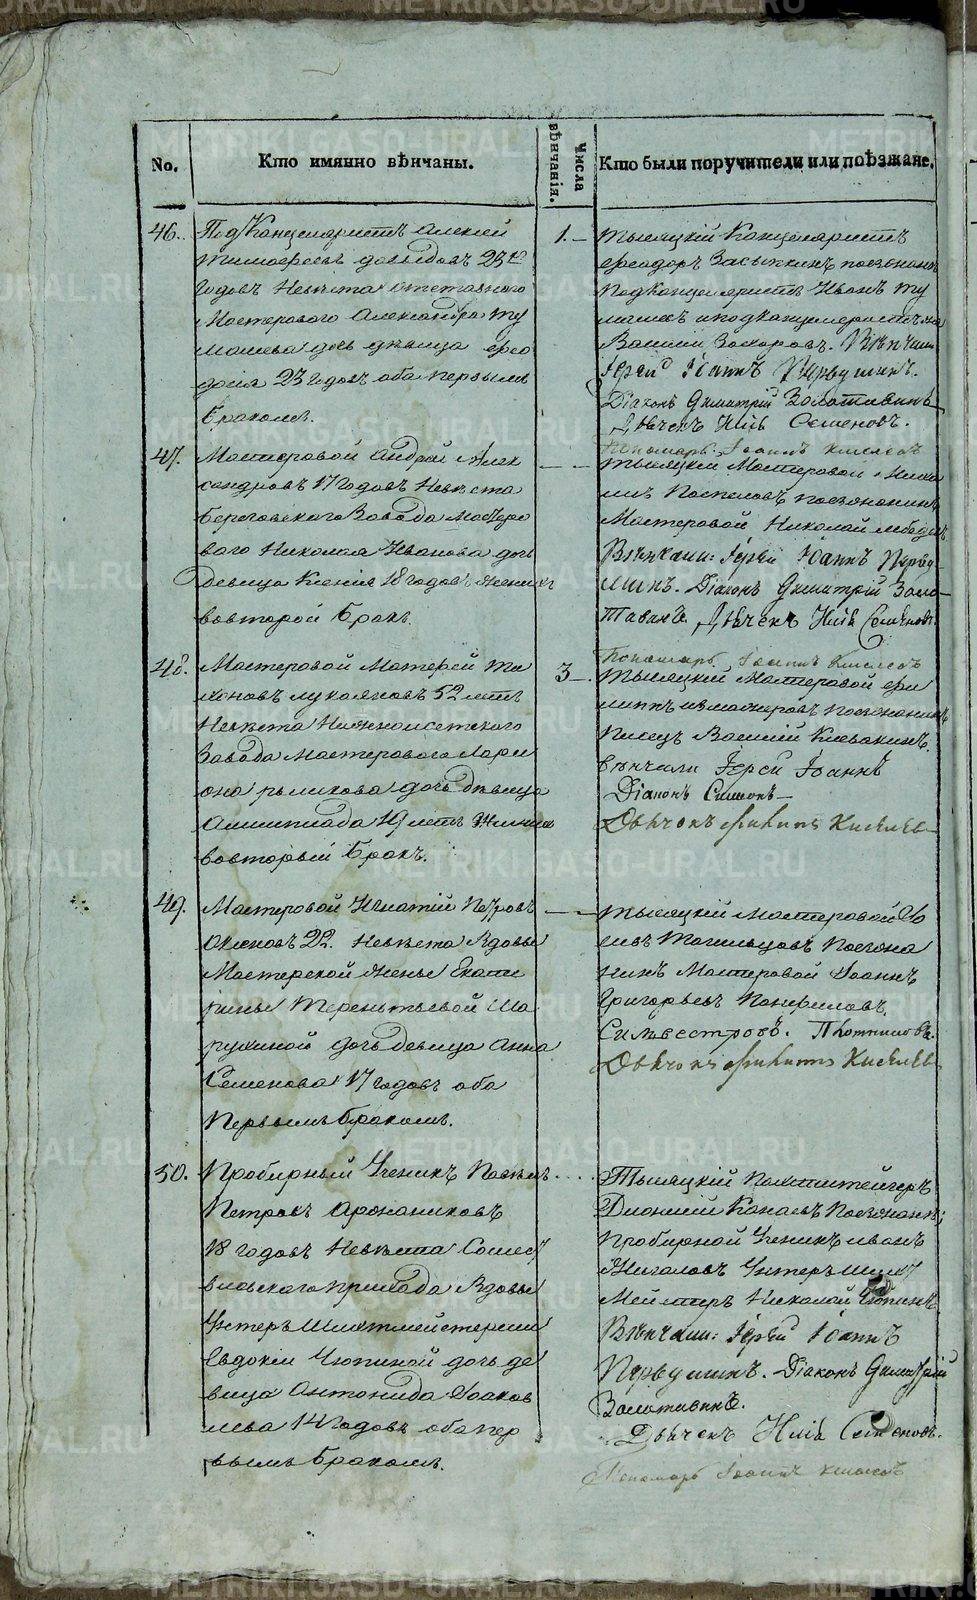 No.
Кто имянно вѣнчаны.
Числа вѣнчанія.
Кто были поручители или поѣзжане.
46.
Подканцеляристъ Алексей
Тимофеевъ 23
годовъ Невѣста отставного
Мастерового Александра Ту
машева дочь девица Фео
досія 23 годовъ оба первымъ
бракомъ.
1.
Тысяцкій Канцеляристъ
Феодоръ Засыпкинъ поезжанинъ
Подканцеляристъ Иванъ Ту
машевъ и подканцеляристъ
Василий Захаровъ. Вѣнчали
Іерей Іоаннъ
Діаконъ Димитрій Золотавинъ
Дьячекъ Нилъ Семеновъ.
Пономарь Іоаннъ Киселевъ
47.
Мастеровой Андрей Алек
сандровъ 17 годовъ Невѣста
Березовскаго Завода мастеро
вого Николая Иванова дочь
девица Ксенія 18 годовъ жених
вовторой бракъ.
Тысяцкій Мастеровой
Поспеловъ поезжанинъ
Мастеровой Николай Лебедевъ
Вѣнчали: Іерей Іоаннъ
Діаконъ Димитрій Золо
тавинъ Дьячекъ Нилъ Семеновъ.
Пономарь Іоаннъ Киселевъ
48.
Мастеровой Матфей Ти
хоновъ Лукояновъ 52 летъ
Невѣста Нижнеисетского
Завода мастерового Лари
она Рыликова дочь девица
Алимпиада 19 летъ жених
вовторый бракъ.
3
Тысяцкій мастеровой Фи
липъ поезжанинъ
Василий Клевакинъ.
вѣнчали Іерей Іоаннъ
Діаконъ Симеонъ
Дьячокъ Филиппъ Киселевъ
49.
Мастеровой Игнатій Петровъ
22. Невѣста Вдовы
Мастерской жены Екате
рины Терентьевой Ша
дочь девица Анна
Семенова 17 годовъ оба
первымъ бракомъ.
Тысяцкій мастеровой
Тагильцовъ поезжа
нинъ Мастеровой Іоаннъ
Григорьевъ Панфиловъ.
Силвестровъ. Плотниковъ.
Дьячокъ Филиппъ Киселевъ
50.
Пробирный Ученикъ Павелъ
Петровъ
18 годовъ Невѣста Сошест
вияского прихода Вдовы
Унтеръ Шихтмейстерши
Евдокіи Чупиной дочь де
вица Антонида Іаков
лева 14 годовъ оба пер
вымъ бракомъ.
Тысяцкій Похштейгеръ
Дионисій Канаевъ поезжанинъ
пробирной Ученикъ Иванъ
Жигаловъ Унтеръ шихт
мейстеръ Николай Чупинъ.
Вѣнчали: Іерей Іоаннъ
Діаконъ Димитрій
Золотавинъ.
Дьячекъ Нилъ Семеновъ.
Пономарь Іоаннъ Киселевъ